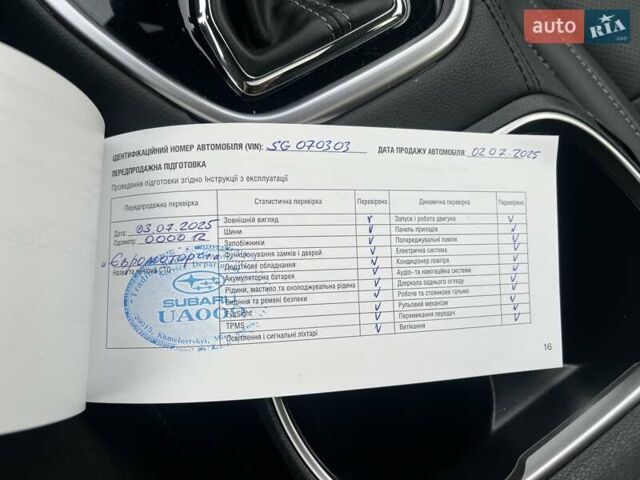 auto RIA .com
ІДЕНТИФІКАЦІЙНИЙ НОМЕР АВТОМОБІЛЯ (VIN): SG 070303 ДАТА ПРОДАЖУ АВТОМОБІЛЯ: 02.07.2025
ПЕРЕДПРОДАЖНА ПІДГОТОВКА
Проведення підготовки згідно Інструкції з експлуатації
Передпродажна перевірка Статистична перевірка Перевірено Динамічна перевірка Перевірено
Дата: 03.07.2025
Одометр: 0000
"Євромотор
SUBARU
UA00
29015, Khmelnytskyi,
Зовнішній вигляд Запуск і робота двигуна
Шини Панель приладів
Запобіжники Попереджувальні лампи
Функціонування замків і дверей Електрична система
Додаткове обладнання Кондиціонер повітря
Акумуляторна батарея Аудіо- та навігаційна системи
Рідини, мастило та охолоджувальна рідина Дзеркала заднього огляду
Сидіння та ремені безпеки Робоче та стоянкове гальмо
EyeSight Рульовий механізм
TPMS Перемикання передач
Освітлення і сигнальні ліхтарі Витікання
16